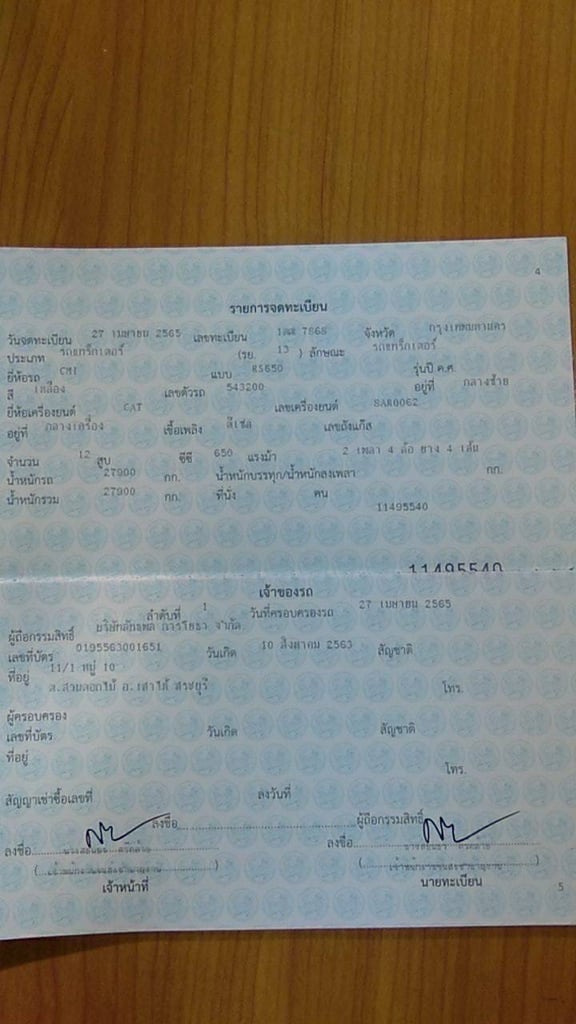 4
รายการจดทะเบียน
วันจดทะเบียน 27 เมษายน 2565 เลขทะเบียน 7868 จังหวัด กรุงเทพมหานคร
ประเภท รถแทร็กเตอร์ (รย. 13 ) ลักษณะ รถแทร็กเตอร์
ยี่ห้อรถ CMI แบบ RS650 รุ่นปี ค.ศ.
สี เหลือง เลขตัวรถ 543200 อยู่ที่ กลางซ้าย
ยี่ห้อเครื่องยนต์ CAT เลขเครื่องยนต์ SAR0062
อยู่ที่ กลางเครื่อง เชื้อเพลิง ดีเซล เลขถังแก๊ส
จำนวน 12 สูบ ซีซี 650 แรงม้า 2 เพลา 4 ล้อ ยาง 4 เส้น
น้ำหนักรถ 27900 กก. น้ำหนักบรรทุก/น้ำหนักลงเพลา กก.
น้ำหนักรวม 27900 กก. ที่นั่ง คน
11495540
11495540
เจ้าของรถ
ลำดับที่ 1 วันที่ครอบครองรถ 27 เมษายน 2565
ผู้ถือกรรมสิทธิ์ บริษัท การโยธา จำกัด
เลขที่บัตร 0195563001651 วันเกิด 10 สิงหาคม 2563 สัญชาติ
ที่อยู่ 11/1 หมู่ 10
ต.สวนดอกไม้ อ.เสาไห้ สระบุรี โทร.
ผู้ครอบครอง
เลขที่บัตร วันเกิด สัญชาติ
ที่อยู่
โทร.
สัญญาเช่าซื้อเลขที่ ลงวันที่
ลงชื่อ ผู้ถือกรรมสิทธิ์
ลงชื่อ ลงชื่อ
เจ้าหน้าที่ นายทะเบียน
5